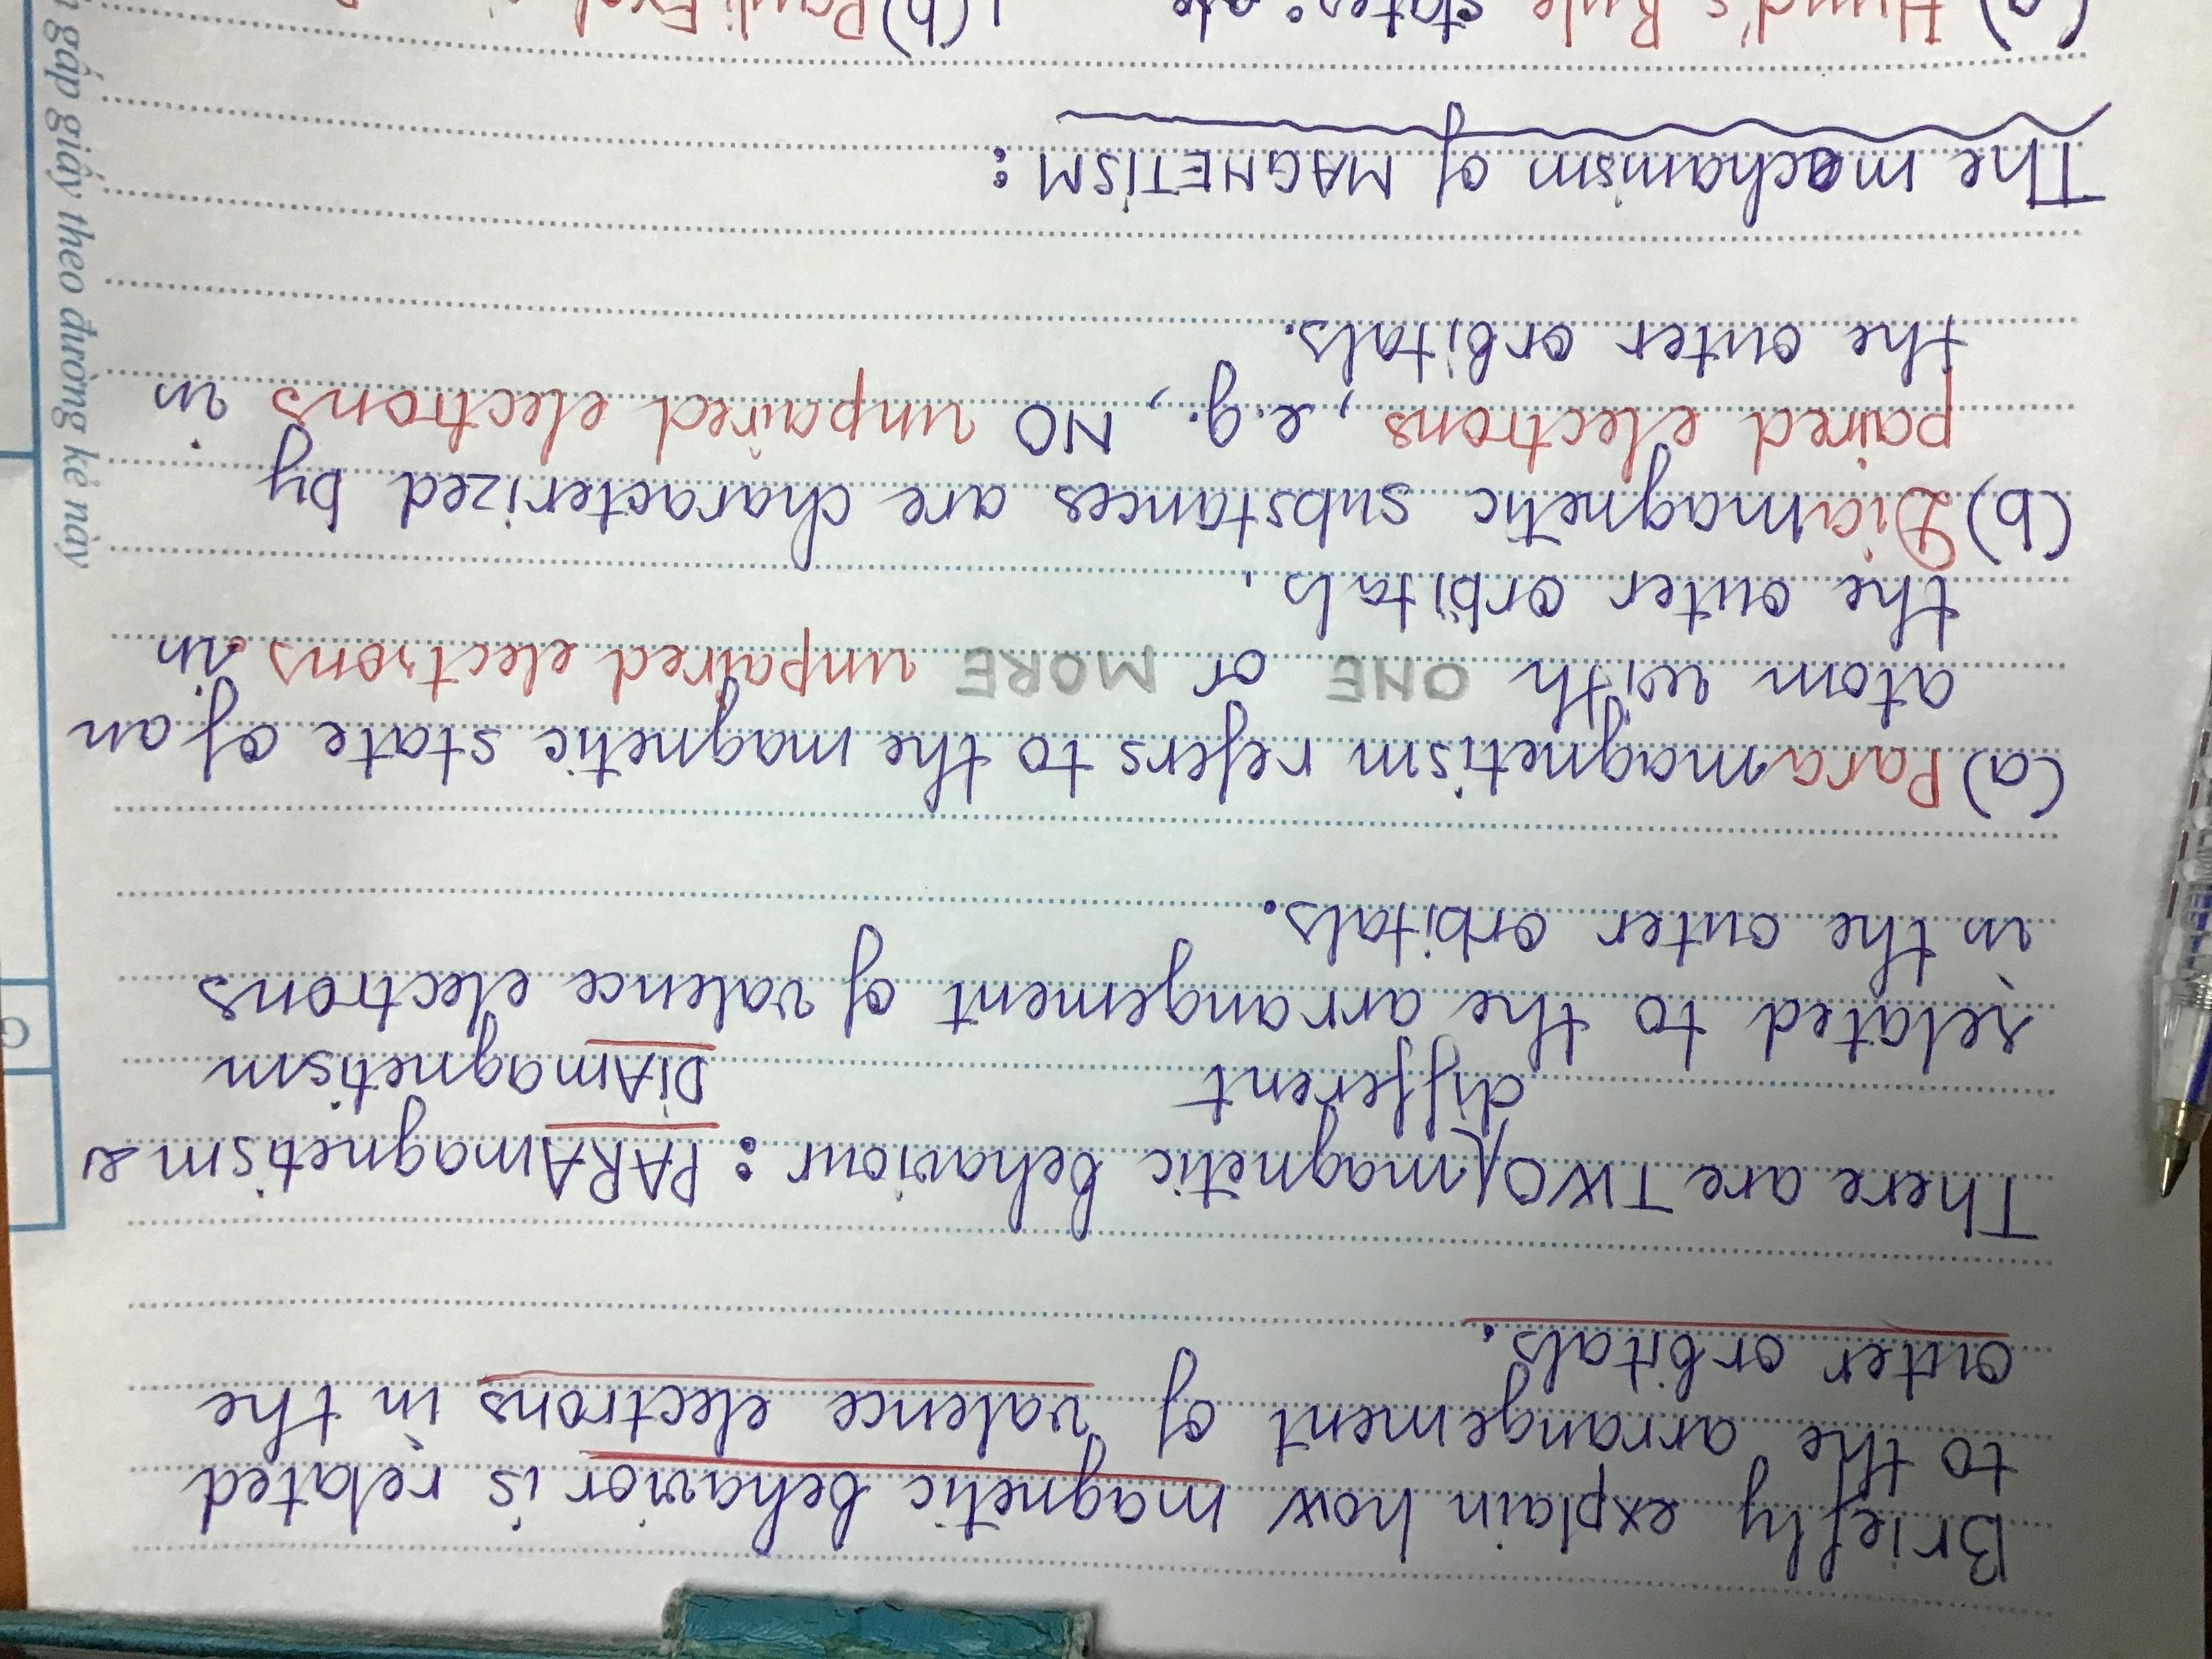 Briefly explain how magnetic behavior is related
to the arrangement of valence electrons in the
outer orbitals.
There are TWO magnetic behaviour: PARAmagnetism &
different DIAmagnetism
related to the arrangement of valence electrons
in the outer orbitals.
(a) Paramagnetism refers to the magnetic state of an
atom with ONE or MORE unpaired electrons in
the outer orbitals.
(b) Diamagnetic substances are characterized by
paired electrons, e.g., NO unpaired electrons in
the outer orbitals.
The mechanism of MAGNETISM:
(a) Hund's Rule states: (b) Pauli
gấp giấy theo đường kẻ này